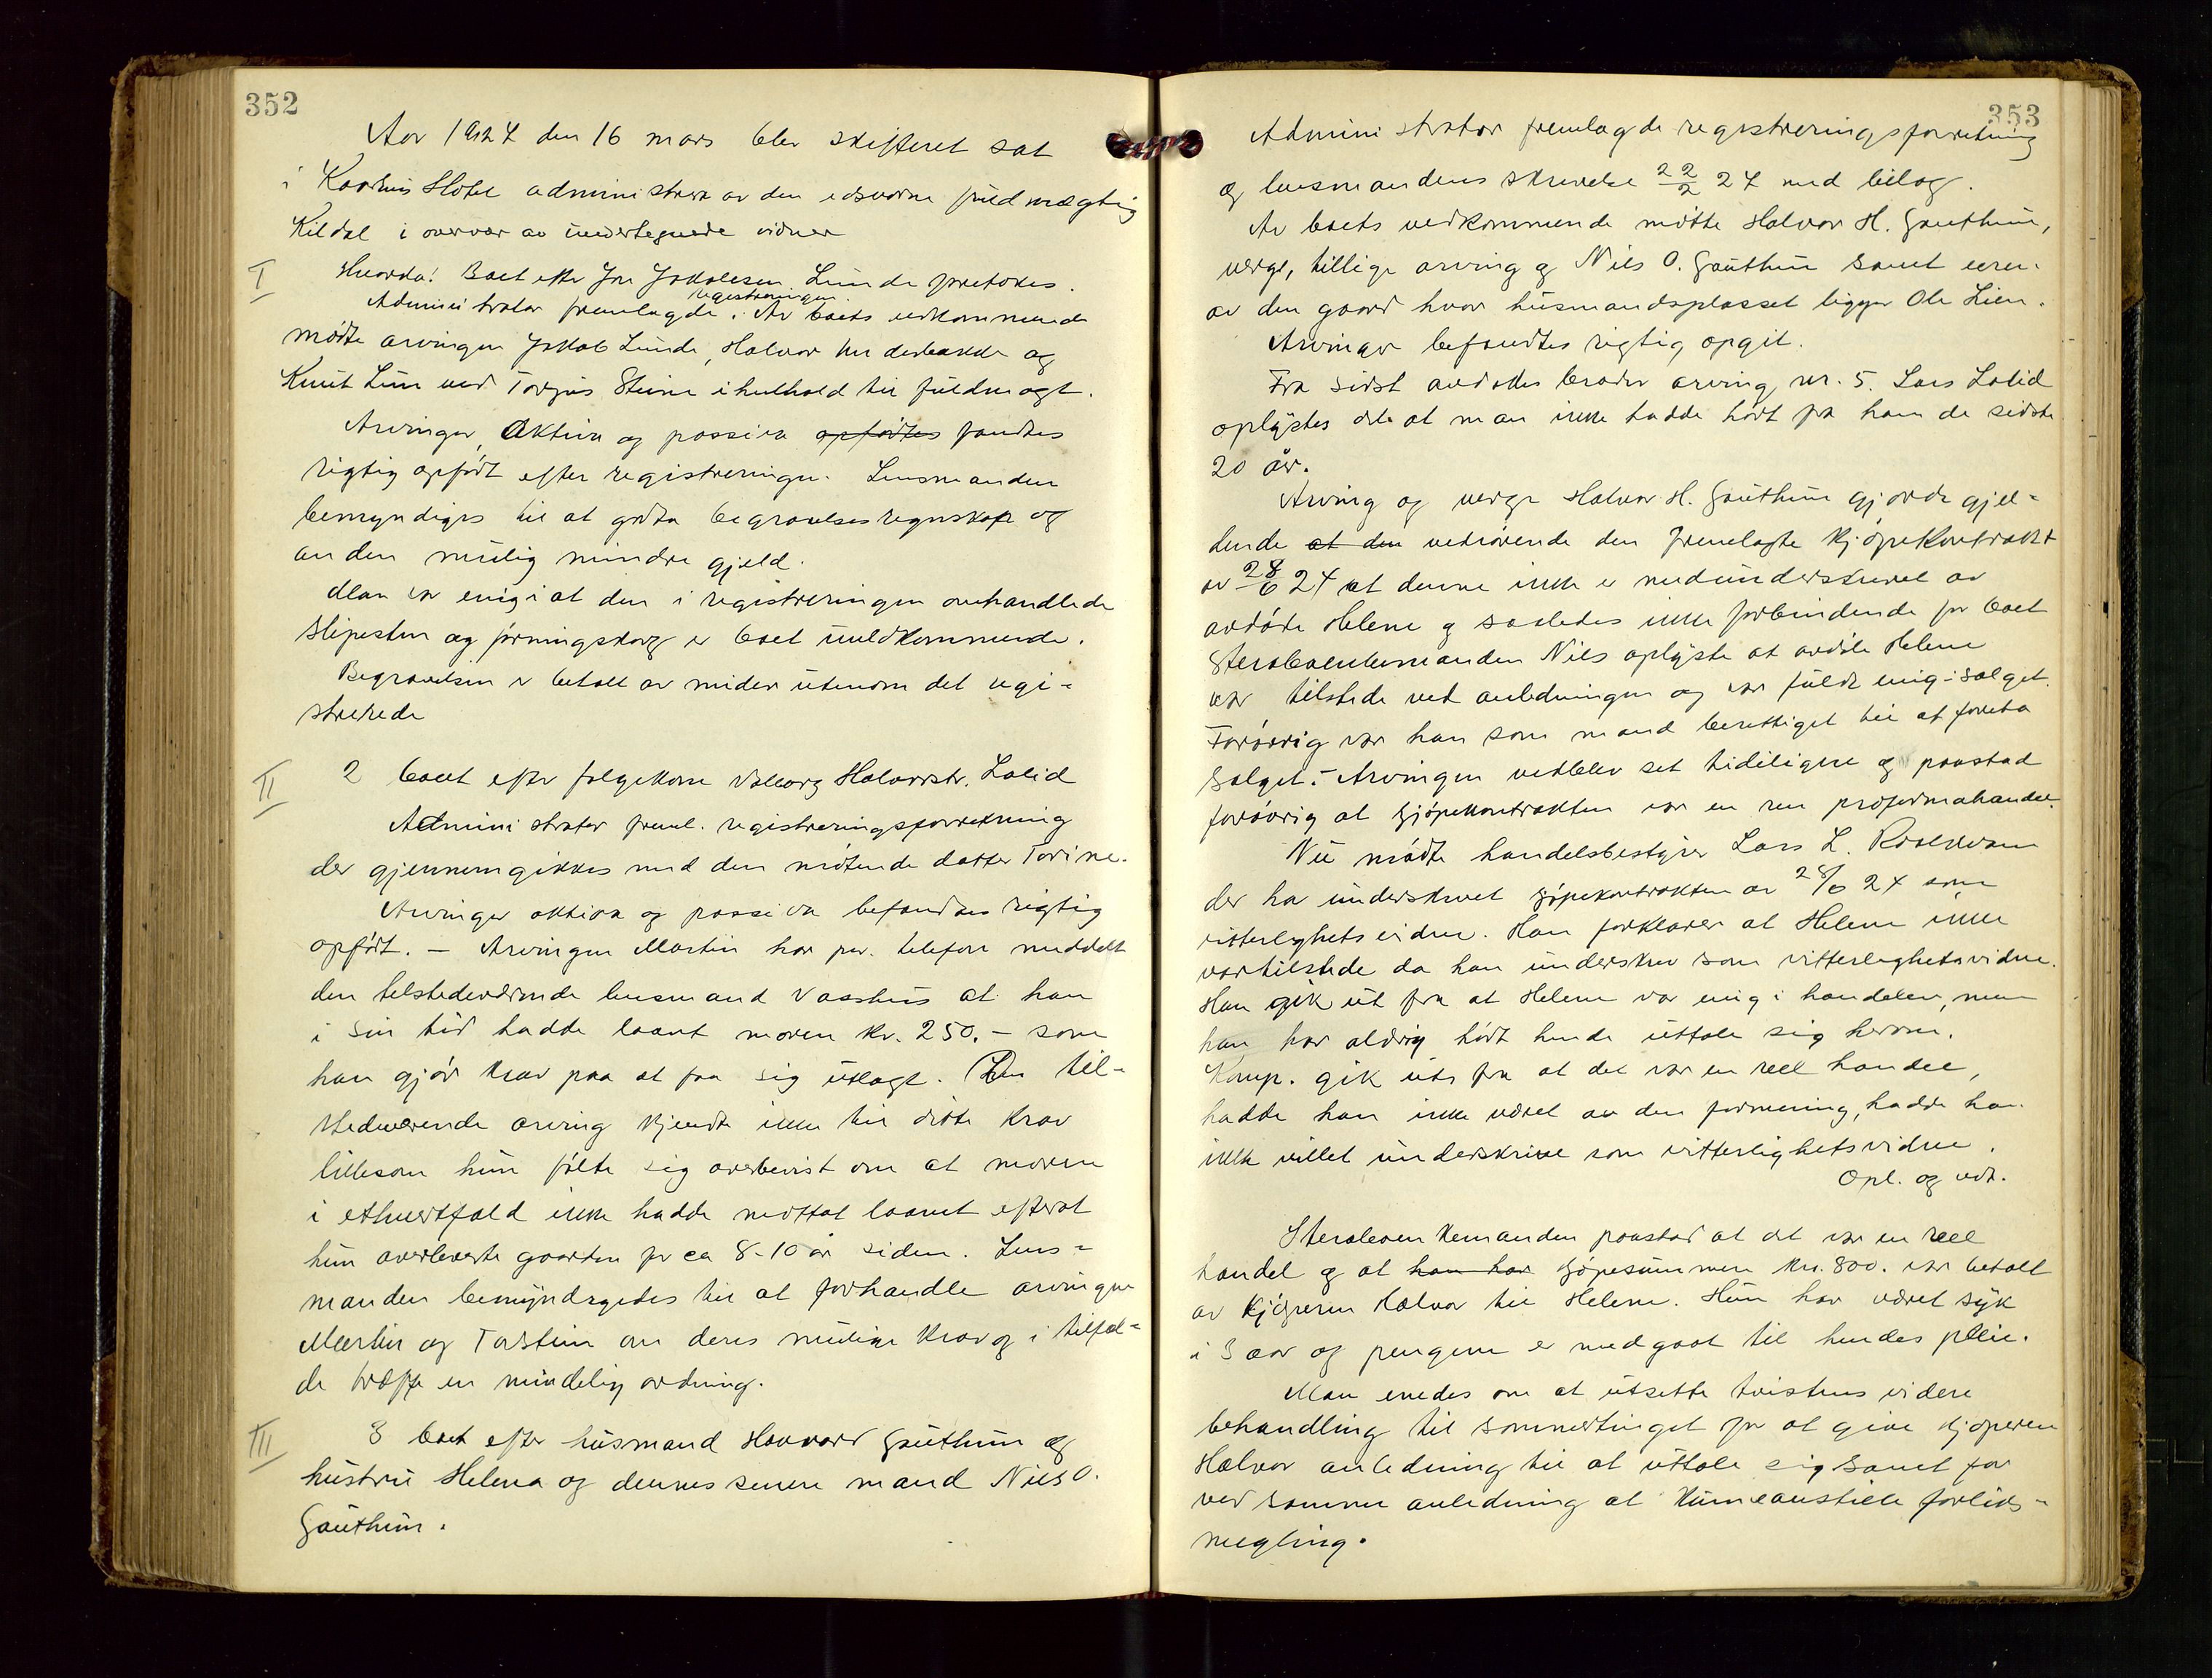 352
Aar 1927 den 16 mars blev skifteret sat
i Kaashus Hotel administrert av den edsvorne fuldmægtig
Kildal i overvær av undertegnede vidner
I Hvorda! Boet efter Jon Jakobsen Lunde foretokes.
registreringen
Administrator fremlagde. Av boets vedkommende
møtte arvingen Jakob Lunde, Halvor og
Knut Lune ved Torjus Steine i henhold til fuldmagt.
Arvinger, Aktiva og passiva opførtes fandtes
rigtig opført efter registreringen. Lensmanden
bemyndiges til at godta begravelsesregnskap og
anden mulig mindre gjeld.
Man var enig i at den i registreringen omhandlede
slipesten og forningskorg er boet uvedkommende.
Begravelsen er betalt av midler utenom det regi-
strerede
II 2 boet efter folgekone Valborg Halvorsdtr. Lolid
Administrator freml. registreringsforretning
der gjennemgikkes med den møtende datter Torine.
Arvinger aktiva og passiva befandtes rigtig
opført. - Arvingen Martin har pr. telefon meddelt
den tilstedeværende lensmand Vasshus at han
i sin tid hadde laant moren kr. 250.- som
han gjør krav paa at faa sig utlagt. Den til-
stedeværende arving kjendte ikke til dette krav
likesom hun følte sig overbevist om at moren
i ethvertfald ikke hadde mottat laanet efterat
hun overleverte gaarden for ca 8-10 år siden. Lens-
manden bemyndigedes til at forhandle arvingen
Martin og Torstein om deres mulige krav og i tilfæl-
de træffe en mindelig ordning.
III 3 boet efter husmand Havvard Gauthun og
hustru Helena og dennes senere mand Nils O.
Gauthun.
353
Administrator fremlagde registreringsforretning
og lensmandens skrivelse 22/2 27 med bilag.
Av boets vedkommende møtte Halvor H. Gauthun,
verge, tillige arving og Nils O. Gauthun samt eieren
av den gaard hvor husmandsplasset ligger Ole Lien.
Arvinger befandtes rigtig opgit.
Fra sidst avdødes broder arving nr. 5. Lars Lolid
oplystes det at man ikke hadde hørt fra ham de sidste
20 år.
Arving og verge Halvor H. Gauthun gjorde gjel-
dende at den vedrørende den fremlagte kjøpekontrakt
av 28/6 24 at denne ikke er medunderskrevet av
avdøde Helene og saaledes ikke forbindende for boet
Sterboenkemanden Nils oplyste at avdøde Helene
var tilstede ved anledningen og var fuldt enig i salget.
Forøvrig var han som mand berettiget til at foreta
salget. - Arvingen vedblev set tidligere og paastod
forøvrig at kjøpekontrakten var en ren proformahandel.
Nu møtte handelsbestyrer Lars L.
der har underskrevet kjøpekontrakten av 28/6 24 som
vitterlighetsvidne. Han forklarer at Helene ikke
var tilstede da han underskrev som vitterlighetsvidne.
Han gik ut fra at Helene var enig i handelen, men
han har aldrig hørt hende uttale sig herom.
Komp. gik ut fra at det var en reel handel,
hadde han ikke været av den formening, hadde han
ikke villet underskrive som vitterlighetsvidne.
Opl. og vedt.
Sterboenkemanden paastod at det var en reel
handel og at han har kjøpesummen kr. 800. var betalt
av kjøperen Halvor til Helene. Hun har været syk
i 3 aar og pengene er medgaat til hendes pleie.
Man enedes om at utsette tvistens videre
behandling til sommertinget for at give kjøperen
Halvor anledning til at uttale sig samt for
ved samme anledning at kunne anstille forliks-
megling.